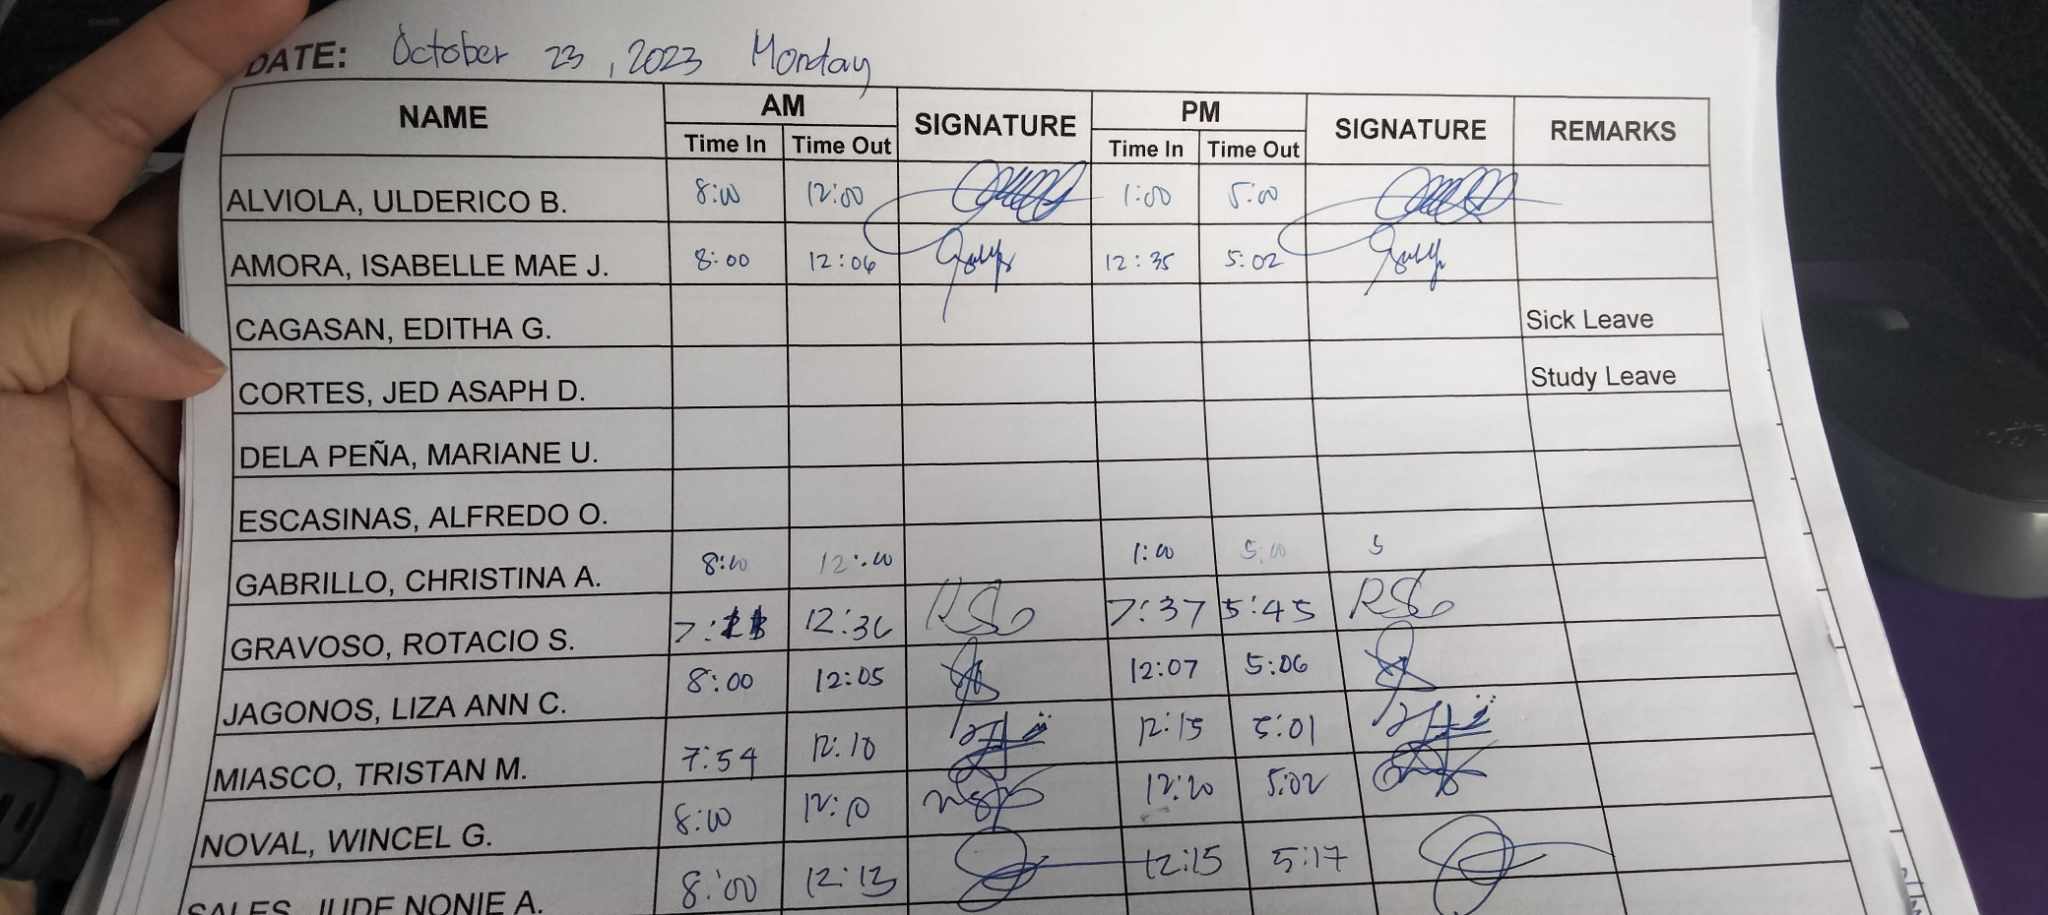 DATE: October 23, 2023 Monday
NAME AM SIGNATURE PM SIGNATURE REMARKS
Time In Time Out Time In Time Out
ALVIOLA, ULDERICO B. 8:00 12:00 1:00 5:00
AMORA, ISABELLE MAE J. 8:00 12:06 12:35 5:02
CAGASAN, EDITHA G. Sick Leave
CORTES, JED ASAPH D. Study Leave
DELA PEÑA, MARIANE U.
ESCASINAS, ALFREDO O.
GABRILLO, CHRISTINA A. 8:00 12:00 1:00 5:00 5
GRAVOSO, ROTACIO S. 12:36 7:37 5:45
JAGONOS, LIZA ANN C. 8:00 12:05 12:07 5:06
MIASCO, TRISTAN M. 7:54 12:10 12:15 5:01
NOVAL, WINCEL G. 8:00 12:10 12:20 5:02
SALES, JUDE NONIE A. 8:00 12:13 12:15 5:17